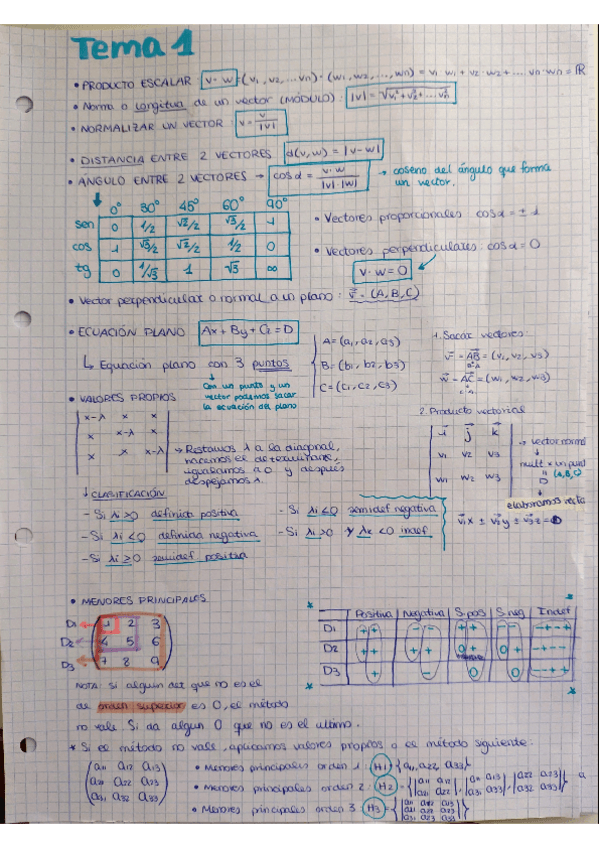 Tema 1
• PRODUCTO ESCALAR v · w = (v1, v2, ... vn) · (w1, w2, ..., wn) = v1 · w1 + v2 · w2 + ... vn · wn = ℝ
• Norma o longitud de un vector (MÓDULO) : |v| = √v1² + v2² + ... vn²
• NORMALIZAR UN VECTOR : v = v / |v|
• DISTANCIA ENTRE 2 VECTORES d(v,w) = |v - w|
• ÁNGULO ENTRE 2 VECTORES → cos α = v · w / |v| · |w| → coseno del ángulo que forma
un vector.
0° 30° 45° 60° 90°
sen 0 1/2 √2/2 √3/2 1
cos 1 √3/2 √2/2 1/2 0
tg 0 1/√3 1 √3 ∞
• Vectores proporcionales cos α = ± 1
• Vectores perpendiculares : cos α = 0
v · w = 0
• Vector perpendicular o normal a un plano : v = (A, B, C)
• ECUACIÓN PLANO Ax + By + Cz = D
↳ Equación plano con 3 puntos
Con un punto y un
vector podemos sacar
la ecuación del plano
A = (a1, a2, a3)
B = (b1, b2, b3)
C = (c1, c2, c3)
1. Sacar vectores :
v = AB = (v1, v2, v3)
B - A
w = AC = (w1, w2, w3)
2. Producto vectorial
i j k
v1 v2 v3
w1 w2 w3
→ vector normal
mult × un punt
D (A, B, C)
elaboramos recta
• VALORES PROPIOS
x-λ x x
x x-λ x
x x x-λ
→ Restamos λ a la diagonal,
hacemos el determinante,
igualamos a 0 y después
despejamos λ.
↓ CLASIFICACIÓN
- Si λi > 0 definida positiva
- Si λi < 0 definida negativa
- Si λi ≥ 0 semidef positiva
- Si λi ≤ 0 semidef negativa
- Si λi > 0 y λk < 0 indef
• MENORES PRINCIPALES
D1 1 2 3
D2 4 5 6
D3 7 8 9
Positiva Negativa S.pos S.neg Indef
D1
D2
D3
NOTA Si algún det que no es el
de orden superior es 0, el método
no vale. Si da algun 0 que no es el ultimo.
* Si el método no vale, aplicamos valores propios o el método siguiente:
a11 a12 a13
a21 a22 a23
a31 a32 a33
• Menores principales orden 1 : H1 {a11, a22, a33}
• Menores principales orden 2 : H2 = { |a11 a12 a21 a22| , |a11 a13 a31 a33| , |a22 a23 a32 a33| }
• Menores principales orden 3 : H3 = { |a11 a12 a13 a21 a22 a23 a31 a32 a33| }